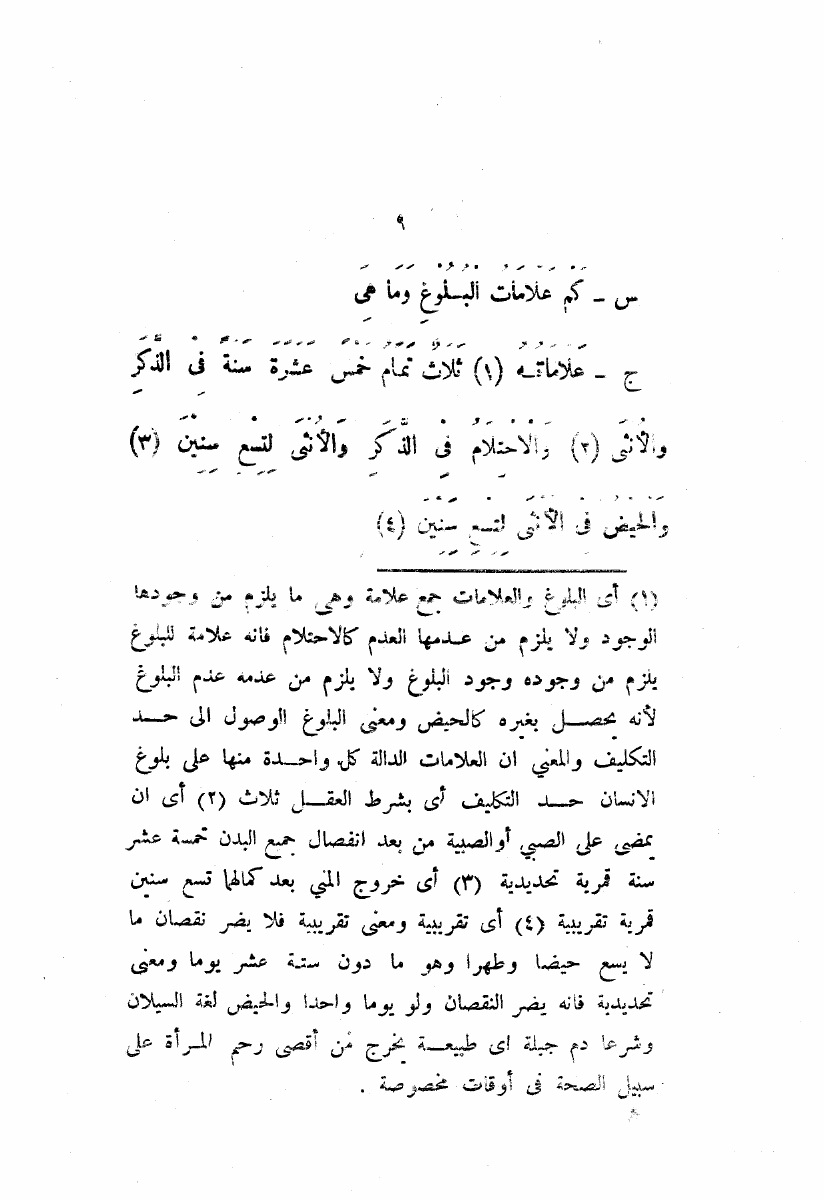 ٩
س ــ كَمْ عَلَامَاتُ الْبُـلُوْغِ وَمَا هِيَ
ج ــ عَلَامَاتُـهُ (١) ثَلَاثٌ تَمَامُ خَمْسَ عَشْرَةَ سَنَةً فِى الذَّكَرِ
وَالْأُنْثَى (٢) وَالْاحْتِلَامُ فِى الذَّكَرِ وَالْأُنْثَى لِتِسْعِ سِنِيْنَ (٣)
وَالْحَيْضُ فِى الْأُنْثَى لِتِسْعِ سِنِيْنَ (٤)
(١) أى البلوغ والعلامات جمع علامة وهى ما يلزم من وجودها
الوجود ولا يلزم من عـدمها العدم كالاحتلام فانه علامة للبلوغ
يلزم من وجوده وجود البلوغ ولا يلزم من عدمه عدم البلوغ
لأنه يحصـــل بغيره كالحيض ومعنى البلوغ الوصول الى حـــد
التكليف والمعني ان العلامات الدالة كل واحـــدة منها على بلوغ
الانسان حـــد التكليف أى بشرط العقـــل ثلاث (٢) أى ان
يمضى على الصبي أوالصبية من بعد انفصال جميع البدن خمسة عشر
سنة قمرية تحديدية (٣) أى خروج المني بعد كمالها تسع سنين
قمرية تقريبية (٤) أى تقريبية ومعنى تقريبية فلا يضر نقصان ما
لا يسع حيضا وطهرا وهو ما دون ستة عشر يوما ومعنى
تحديدية فانه يضر النقصان ولو يوما واحدا والحيض لغة السيلان
وشرعا دم جبلة اى طبيعـــة يخرج من أقصى رحم المـرأة على
سبيل الصحة فى أوقات مخصوصة .